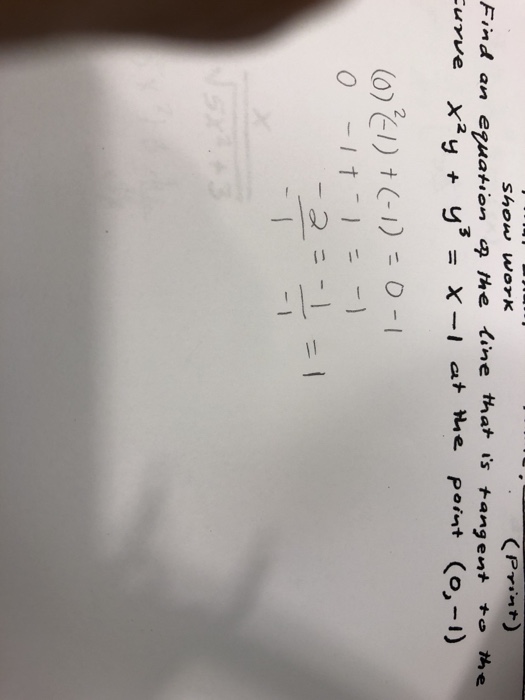 show work
(Print)
Find an equation of the line that is tangent to the
curve x²y + y³ = x - 1 at the point (0, -1)
(0)²(-1) + (-1) = 0 - 1
0 - 1 + - 1 = - 1
-2 = -1
-1 -1 = 1
x
√5x² + 3